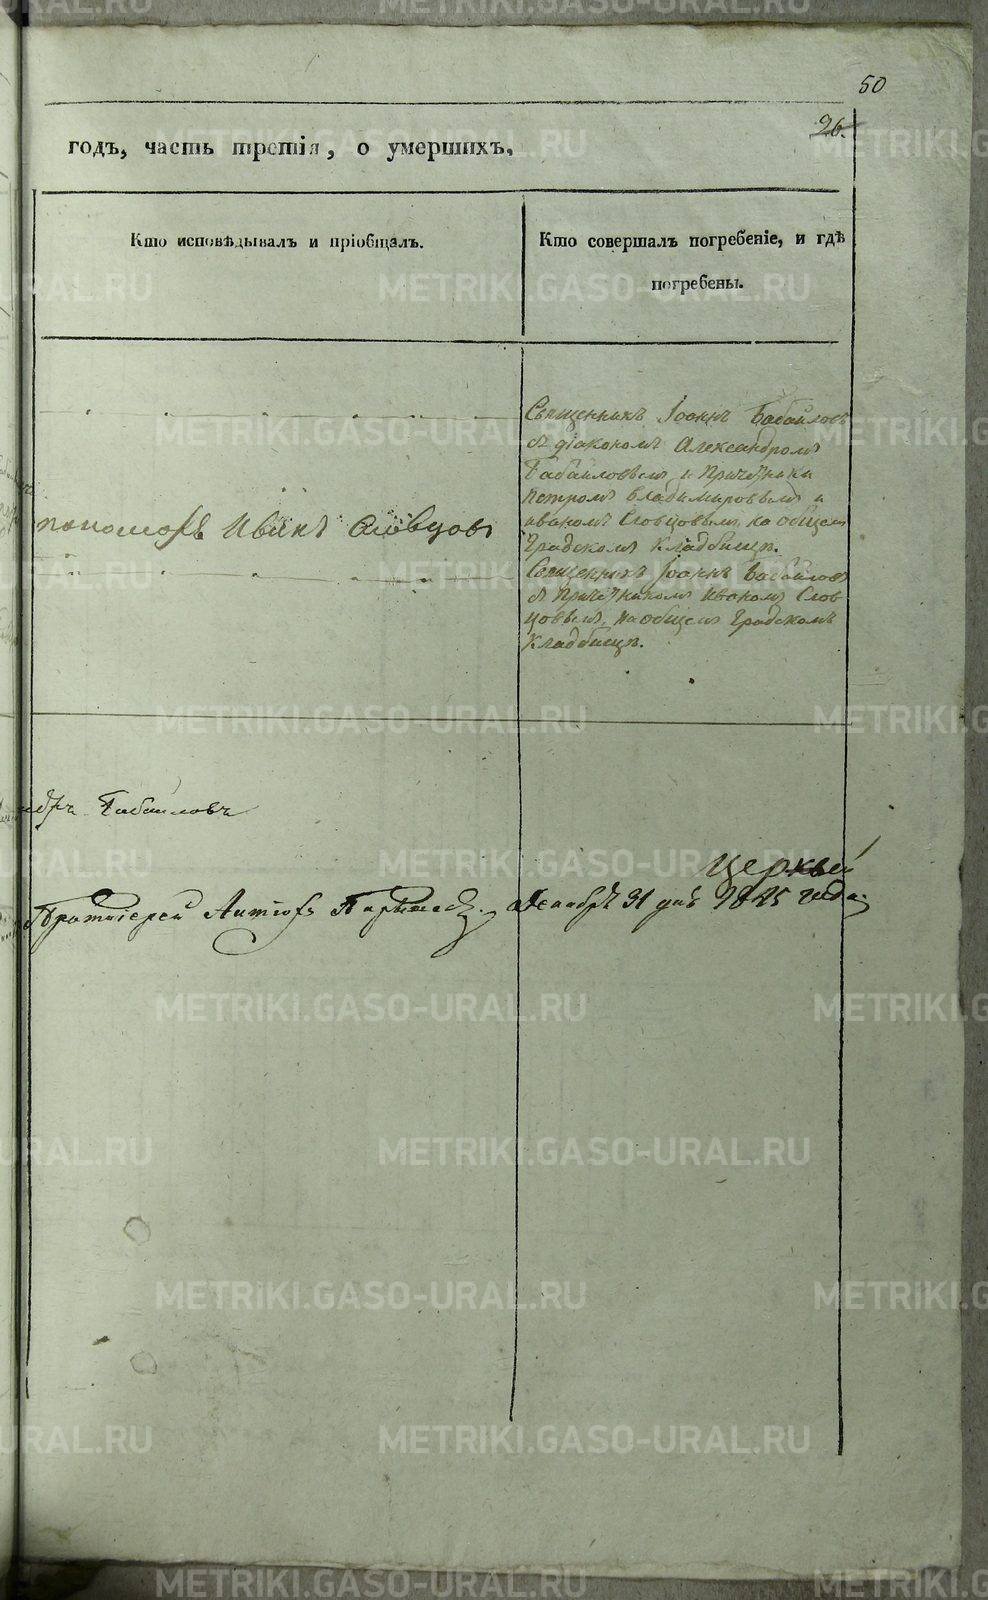 50
26.
годъ, часть третія, о умершихъ,
Кто исповѣдывалъ и пріобщалъ.
Кто совершалъ погребеніе, и гдѣ
погребены.
Священникъ Іоаннъ Бабайловъ
съ діакономъ Александромъ
Бабаиловвым и Причетники
Петромъ Владимировымъ и
Иваномъ Словцовымъ, на общемъ
Градскомъ Кладбищѣ.
пономорь Иванъ Словцовъ
Священникъ Іоаннъ Бабайловъ
съ Причетникомъ Иваномъ Слов
цовымъ, на общемъ Градскомъ
Кладбищѣ.
ндръ Бабаиловъ
Церкви
Протоіерей Декабрь 31 дня 1845 года
METRIKI.GASO-URAL.RU